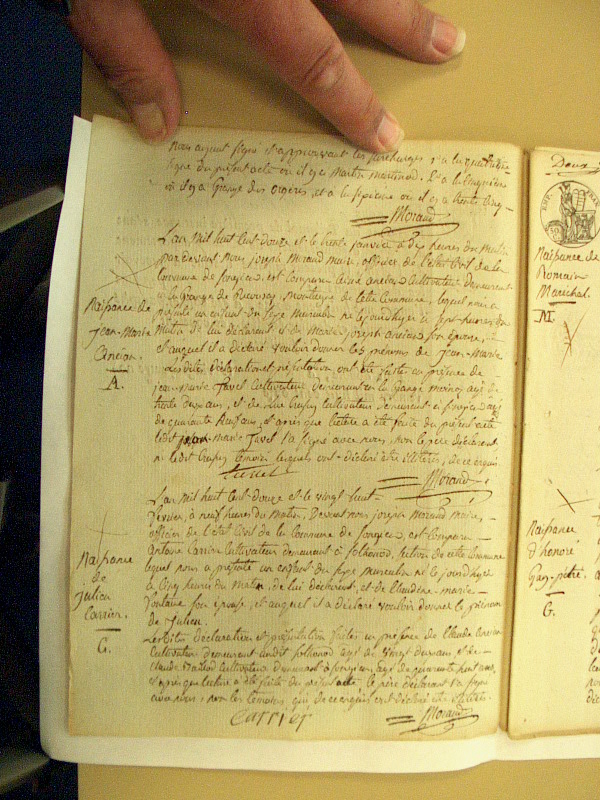 nous ayant signé et approuvant les surcharges l'a la quatrième
ligne du présent acte où il y a Martin
où il y a Grange des orgères, et a la septième où il y a trente cinq
Morand
L'an mil huit cent douze et le trente janvier à dix heures du matin
par devant nous joseph Morand maire, officier de l'état civil de la
Commune de songieu, est comparu Aimé Ancian cultivateur demeurant
à la Grange de montagne de cette commune, lequel nous a
présenté un enfant du sexe masculin né le jourd'hyer à sept heures du
matin de lui déclarant et de Marie joseph ancian son épouse,
et auquel il a déclaré vouloir donner les prénoms de jean-Marie
lesdites déclaration et présentation ont été faite en présence de
jean-marie Favel cultivateur demeurant en la Grange âgé de
trente deux ans, et de cultivateur demeurant à songieu âgé
de quarante huit ans, et après que lecture a été faite du présent acte
ledit jean-marie Favel l'a signé avec nous, non le père déclarant
ni ledit témoin lesquels ont déclaré être illitérés, de ce enquis
Morand
Naissance de
Jean-Marie
Ancian.
A.
L'an mil huit cent douze et le vingt huit
février, à neuf heures du matin, Devant nous joseph Morand Maire,
officier de l'état civil de la Commune de songieu, est comparu
Antoine Carrier cultivateur demeurant à sothonod, section de cette commune
lequel nous a présenté un enfant du sexe masculin né le jourd'hyer
à cinq heures du matin, de lui déclarant, et de Claudine-marie
fontaine son épouse, et auquel il a déclaré vouloir donner le prénom
de Julien.
Lesdites déclaration et présentation faites en présence de Claude Ancian
cultivateur demeurant audit sothonod âgé de vingt deux ans et de
Claude cultivateur demeurant à songieu, âgé de quarante huit ans,
et après que lecture a été faite du présent acte le père déclarant l'a signé
avec nous non les témoins, qui de ce enquis ont déclaré être illitérés.
Carrier
Morand
Naissance
de
Julien
Carrier.
C.
Deux
Naissance de
Romain
Marechal.
M.
Naissance
d'honoré
Guy-
G.